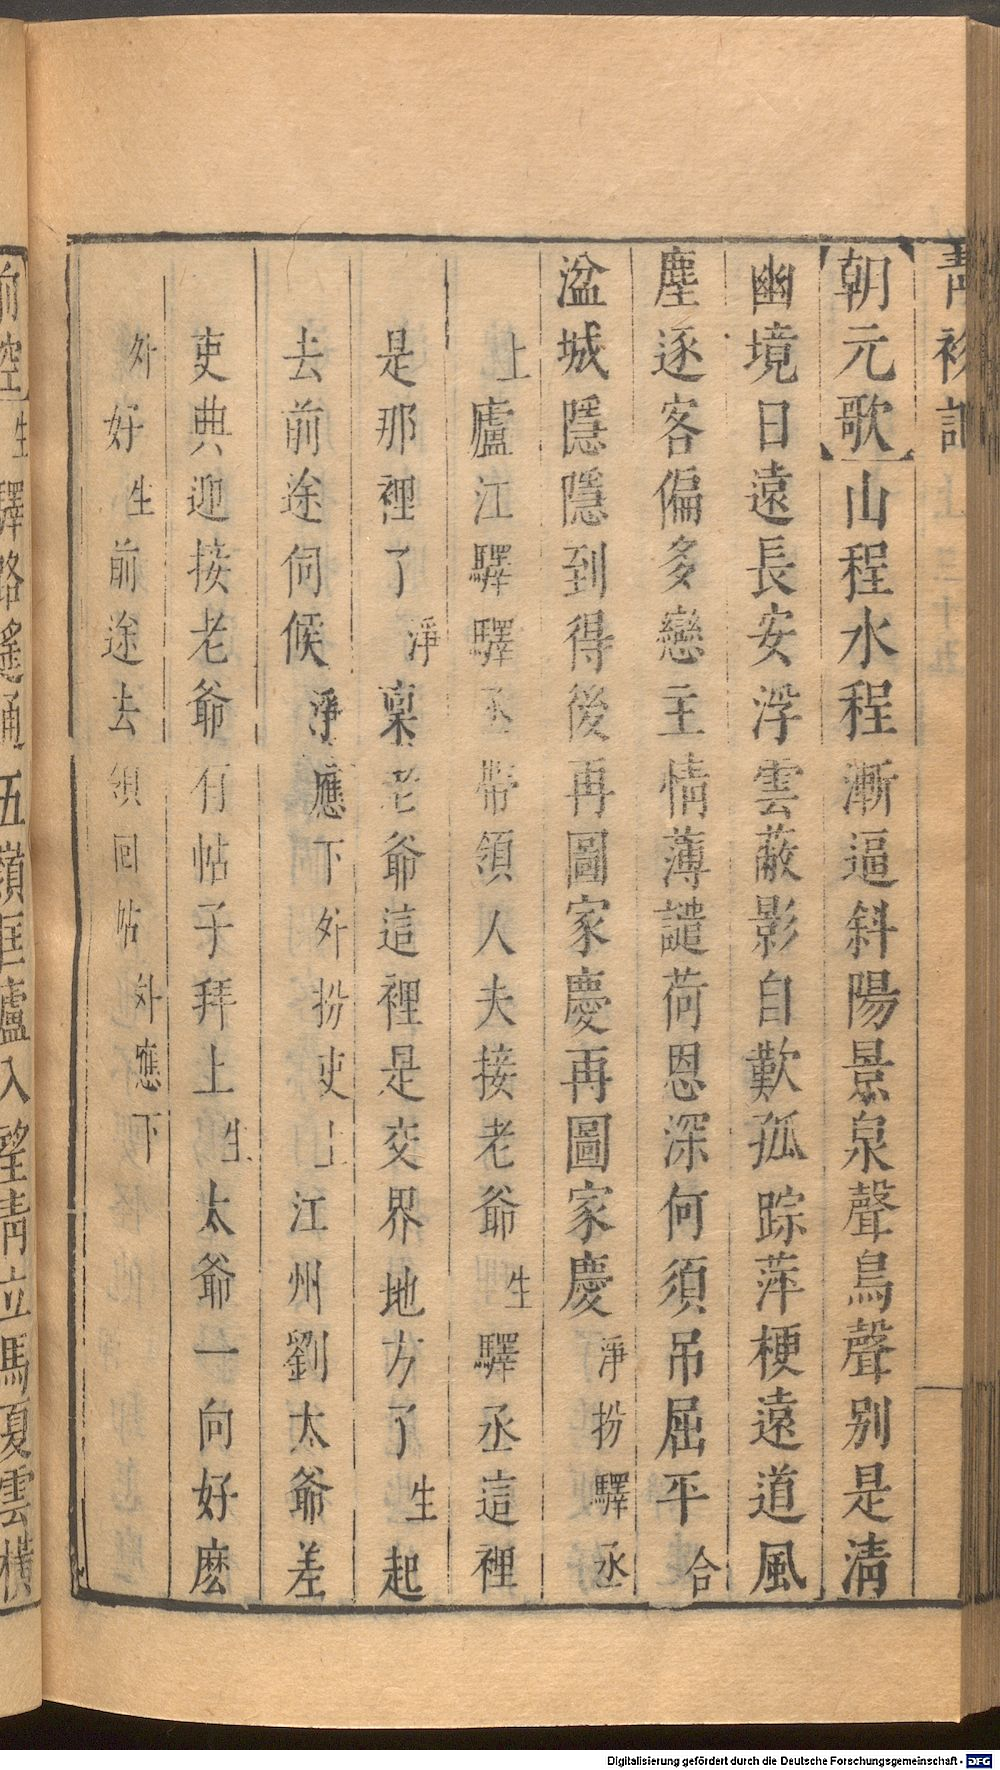 青衫記
【朝元歌】山程水程漸逼斜陽景泉聲鳥聲別是淸
幽境日遠長安浮雲蔽影自歎孤踪萍梗遠道風
塵逐客偏多戀主情薄譴荷恩深何須吊屈平合
盆城隱隱到得後再圖家慶再圖家慶淨扮驛丞
上廬江驛驛丞帶領人夫接老爺生驛丞這裡
是那裡了淨稟老爺這裡是交界地方了生起
去前途伺候淨應下外扮吏上江州劉太爺差
吏典迎接老爺有帖子拜上生太爺一向好麽
外好生前途去領回帖外應下
前空】生驛路遙通五嶺匡廬入望靑立馬夏雲橫
Digitalisierung gefördert durch die Deutsche Forschungsgemeinschaft - DFG